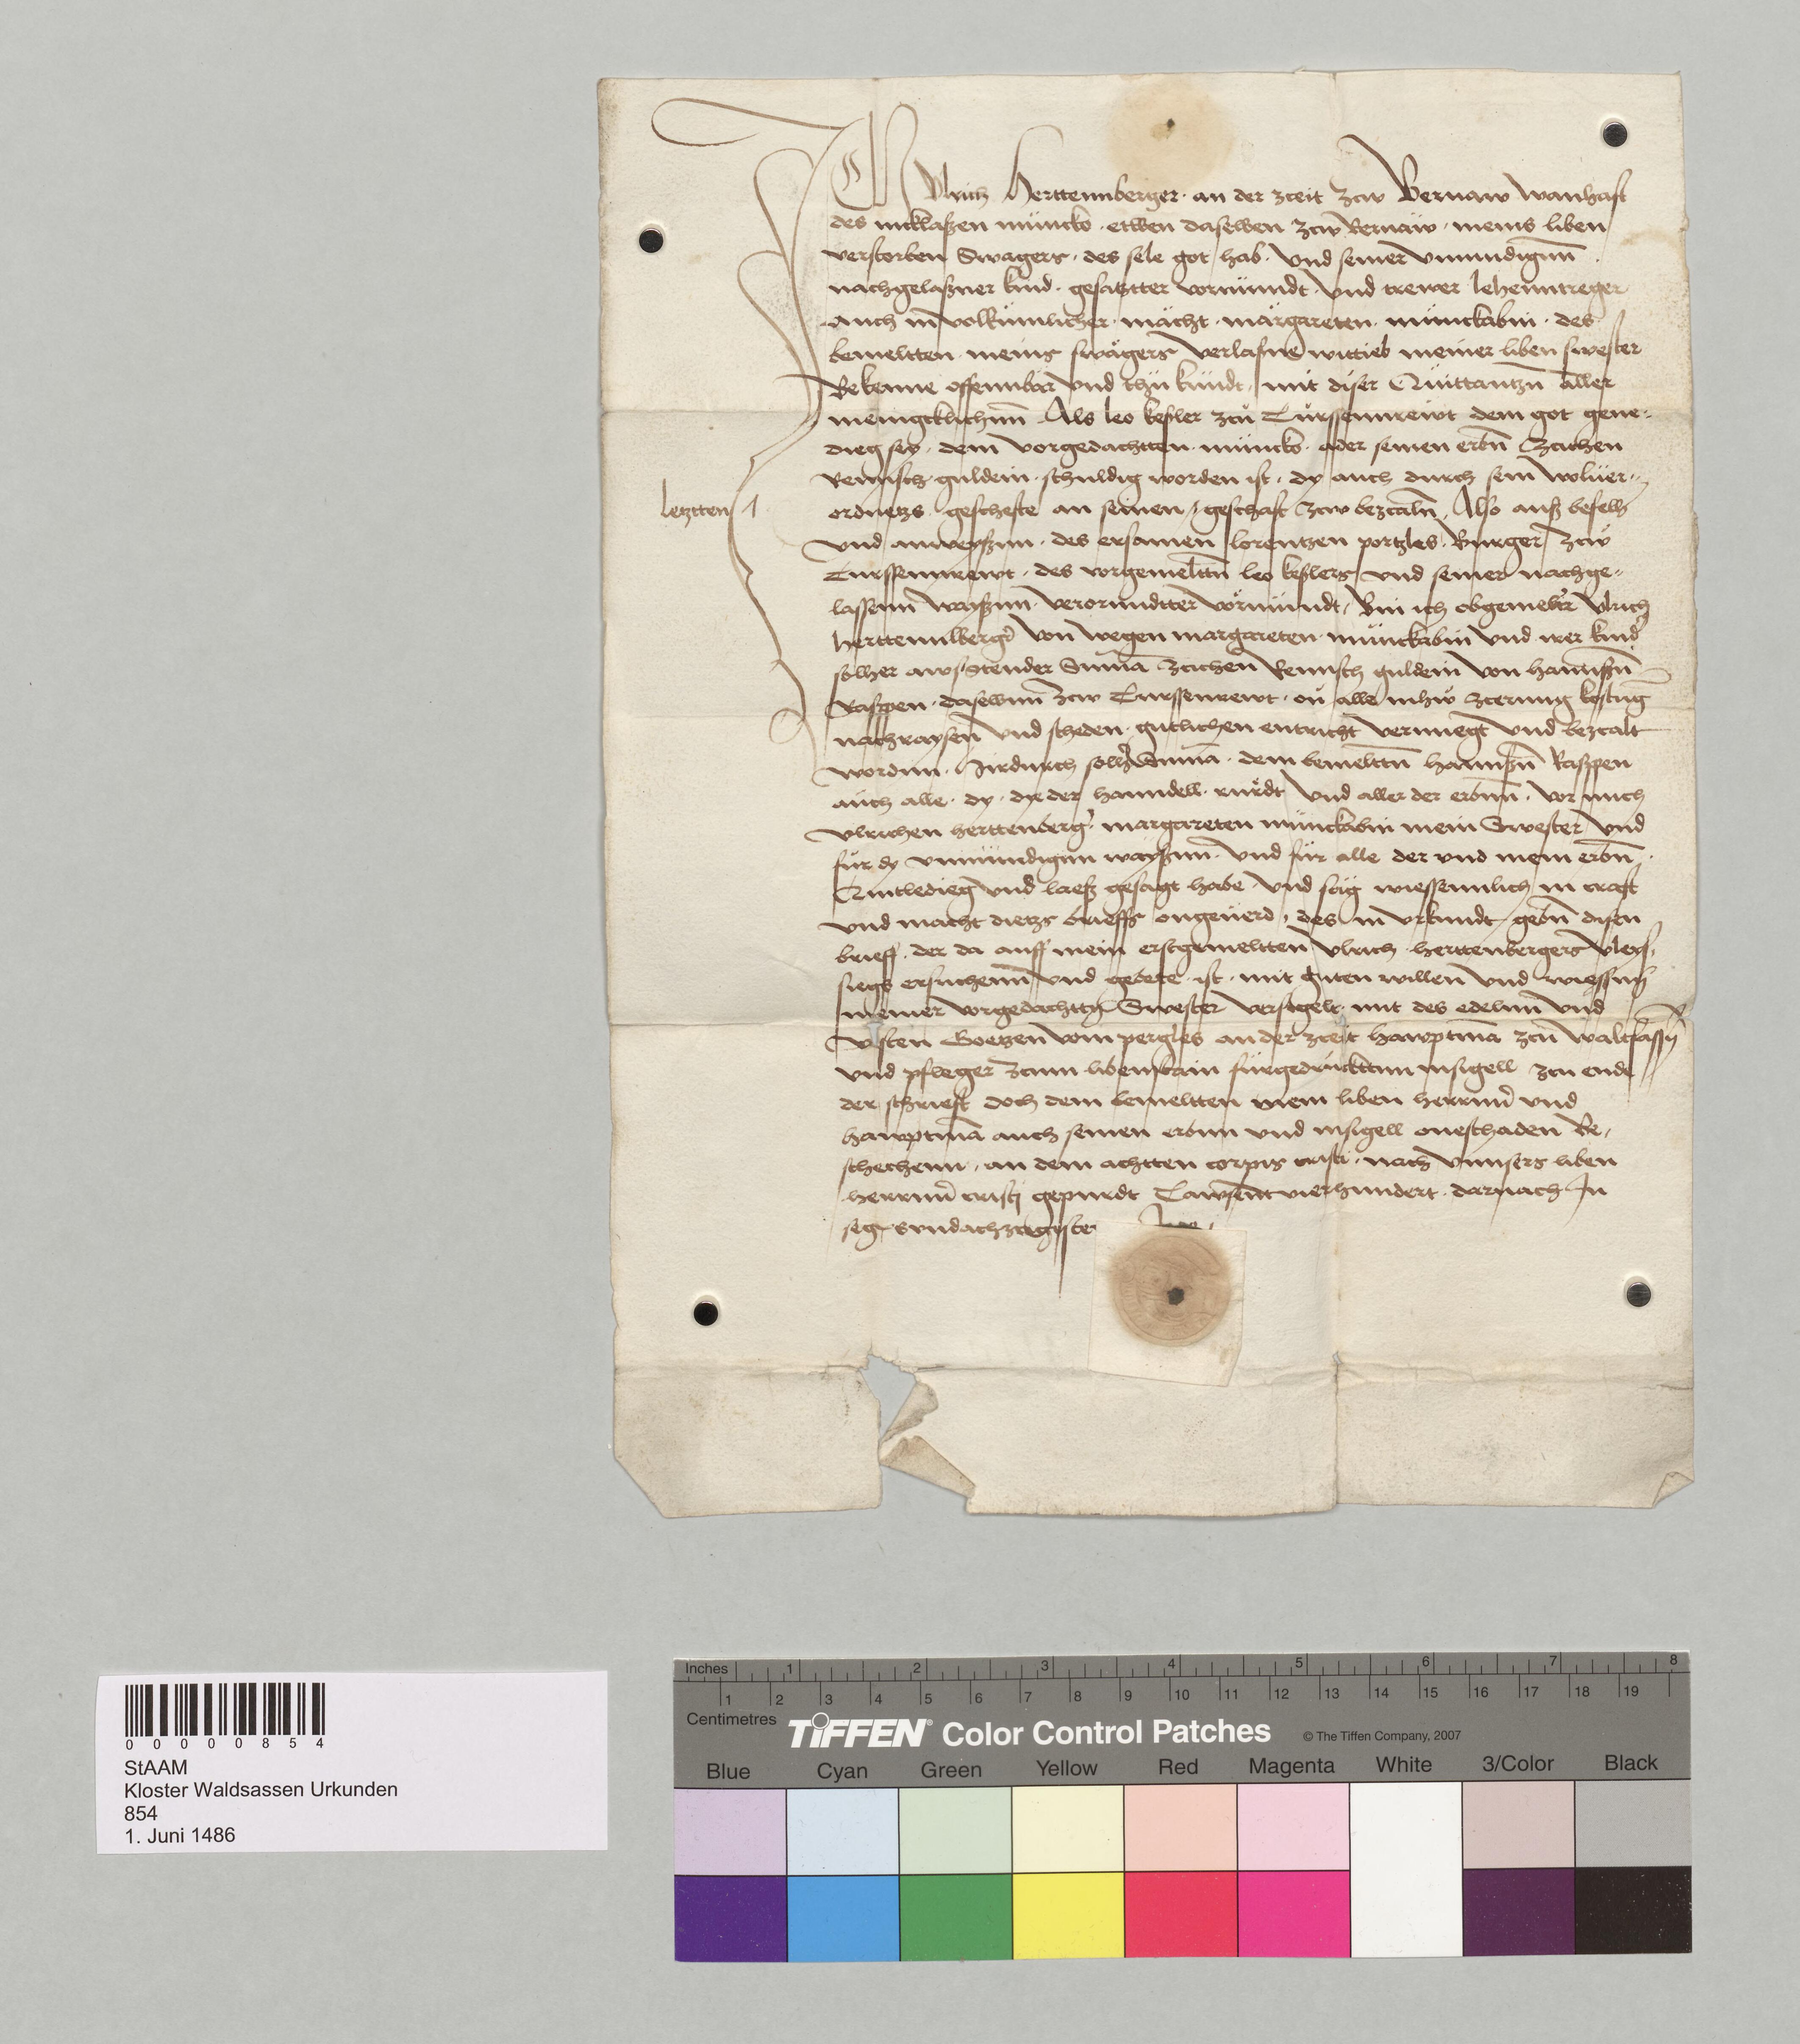 Ich Vlrich Herttennberger · an der zceit zcw Bernaw wanhaft
des nicklaßen müncks · ettwen daselben zcw Bernäw · meins liben
verstorben Swagers · des sele got hab · vnd seiner vnmundigünn
nachgelaßner kind · gesatztter vormündt vnd trewer lehenntreger
auch in volkümlicher · mächt · margareten münckabin · des
bemeltten · meins swägers verlasne wittieb meiner liben swester
Bekenne offennbär vnd thü kündt · mit diser Quittantzn aller
menigcklichnn Als leo keßler zcu Türssennrewt dem got gene-
dieg sey · dem vorgedachtten müncks · ader seinen erbn zcechen
Reinisch guldein schuldig worden ist · dy auch durch sein wolüer-
letzten 1 ordnetzs gescheffte an seinen geschaft zcw bezcaln Also auß befelh
vnd anweyßnn · des ersamen lorentzen portzles Burger zcw
Turssennrewt · des vorgemelttn leo keßlers vnd seiner nachge-
lassenn wayßnn · verorundtter vormündt · Bin ich obgemelter vlrich
herttennberger von wegen margareten münckabin vnd irer kinder
solher aws stender Suma zcechen Reinisch guldein von hannßn
Raspen · daselwnn zcw Turssenrewt · on alle mhw zcerung kostung
nachraysen vnd scheden · gutlichen entricht vernuegt vnd bezcalt
wordnn · Hirdurch solher Suma · dem bemelttn hannßn Raspen
auch alle · dy · dye der hanndell rürdt vnd aller der erbnn · vor mich
vlrichen herttenberger margareten münckabin mein Swester vnd
für dy vnmündignn wayßnn · vnd für alle der vnd mein erbn
Quitledieg vnd laeß gesagt habe vnd säg wiessennlich in craft
vnd macht dietzs brieffs ongeüerd · des in vrkundt gebn disen
brieff · der da auff mein erstgemeltten Vlrich herttenbergers vleys-
siegs ersuchenn vnd gebete ist · mit guten willen vnd wiessnn
meiner vorgedachttn Swester versigelt mit des edelnn vnd
vesten Goetzen vom pergles an der zceit hawptma zcu waltsassn
vnd pfleger zcum libenstain fürgedrückttnn insigell zcu ende
der schrieft doch dem bemeltten mein liben herrnn vnd
hawptma auch seinen erbnn vnd insigell oneschaden Be-
schechenn · an dem achtten corpus cristi · nach vnnsers liben
herrnn cristi gepurdt Tawsent vierhundert · darnach In
sechsvndachzcigiste
0 0 0 0 0 8 5 4
StAAM
Kloster Waldsassen Urkunden
854
1. Juni 1486
Inches 1 2 3 4 5 6 7 8
1 2 3 4 5 6 7 8 9 10 11 12 13 14 15 16 17 18 19
Centimetres TIFFEN® Color Control Patches © The Tiffen Company, 2007
Blue Cyan Green Yellow Red Magenta White 3/Color Black